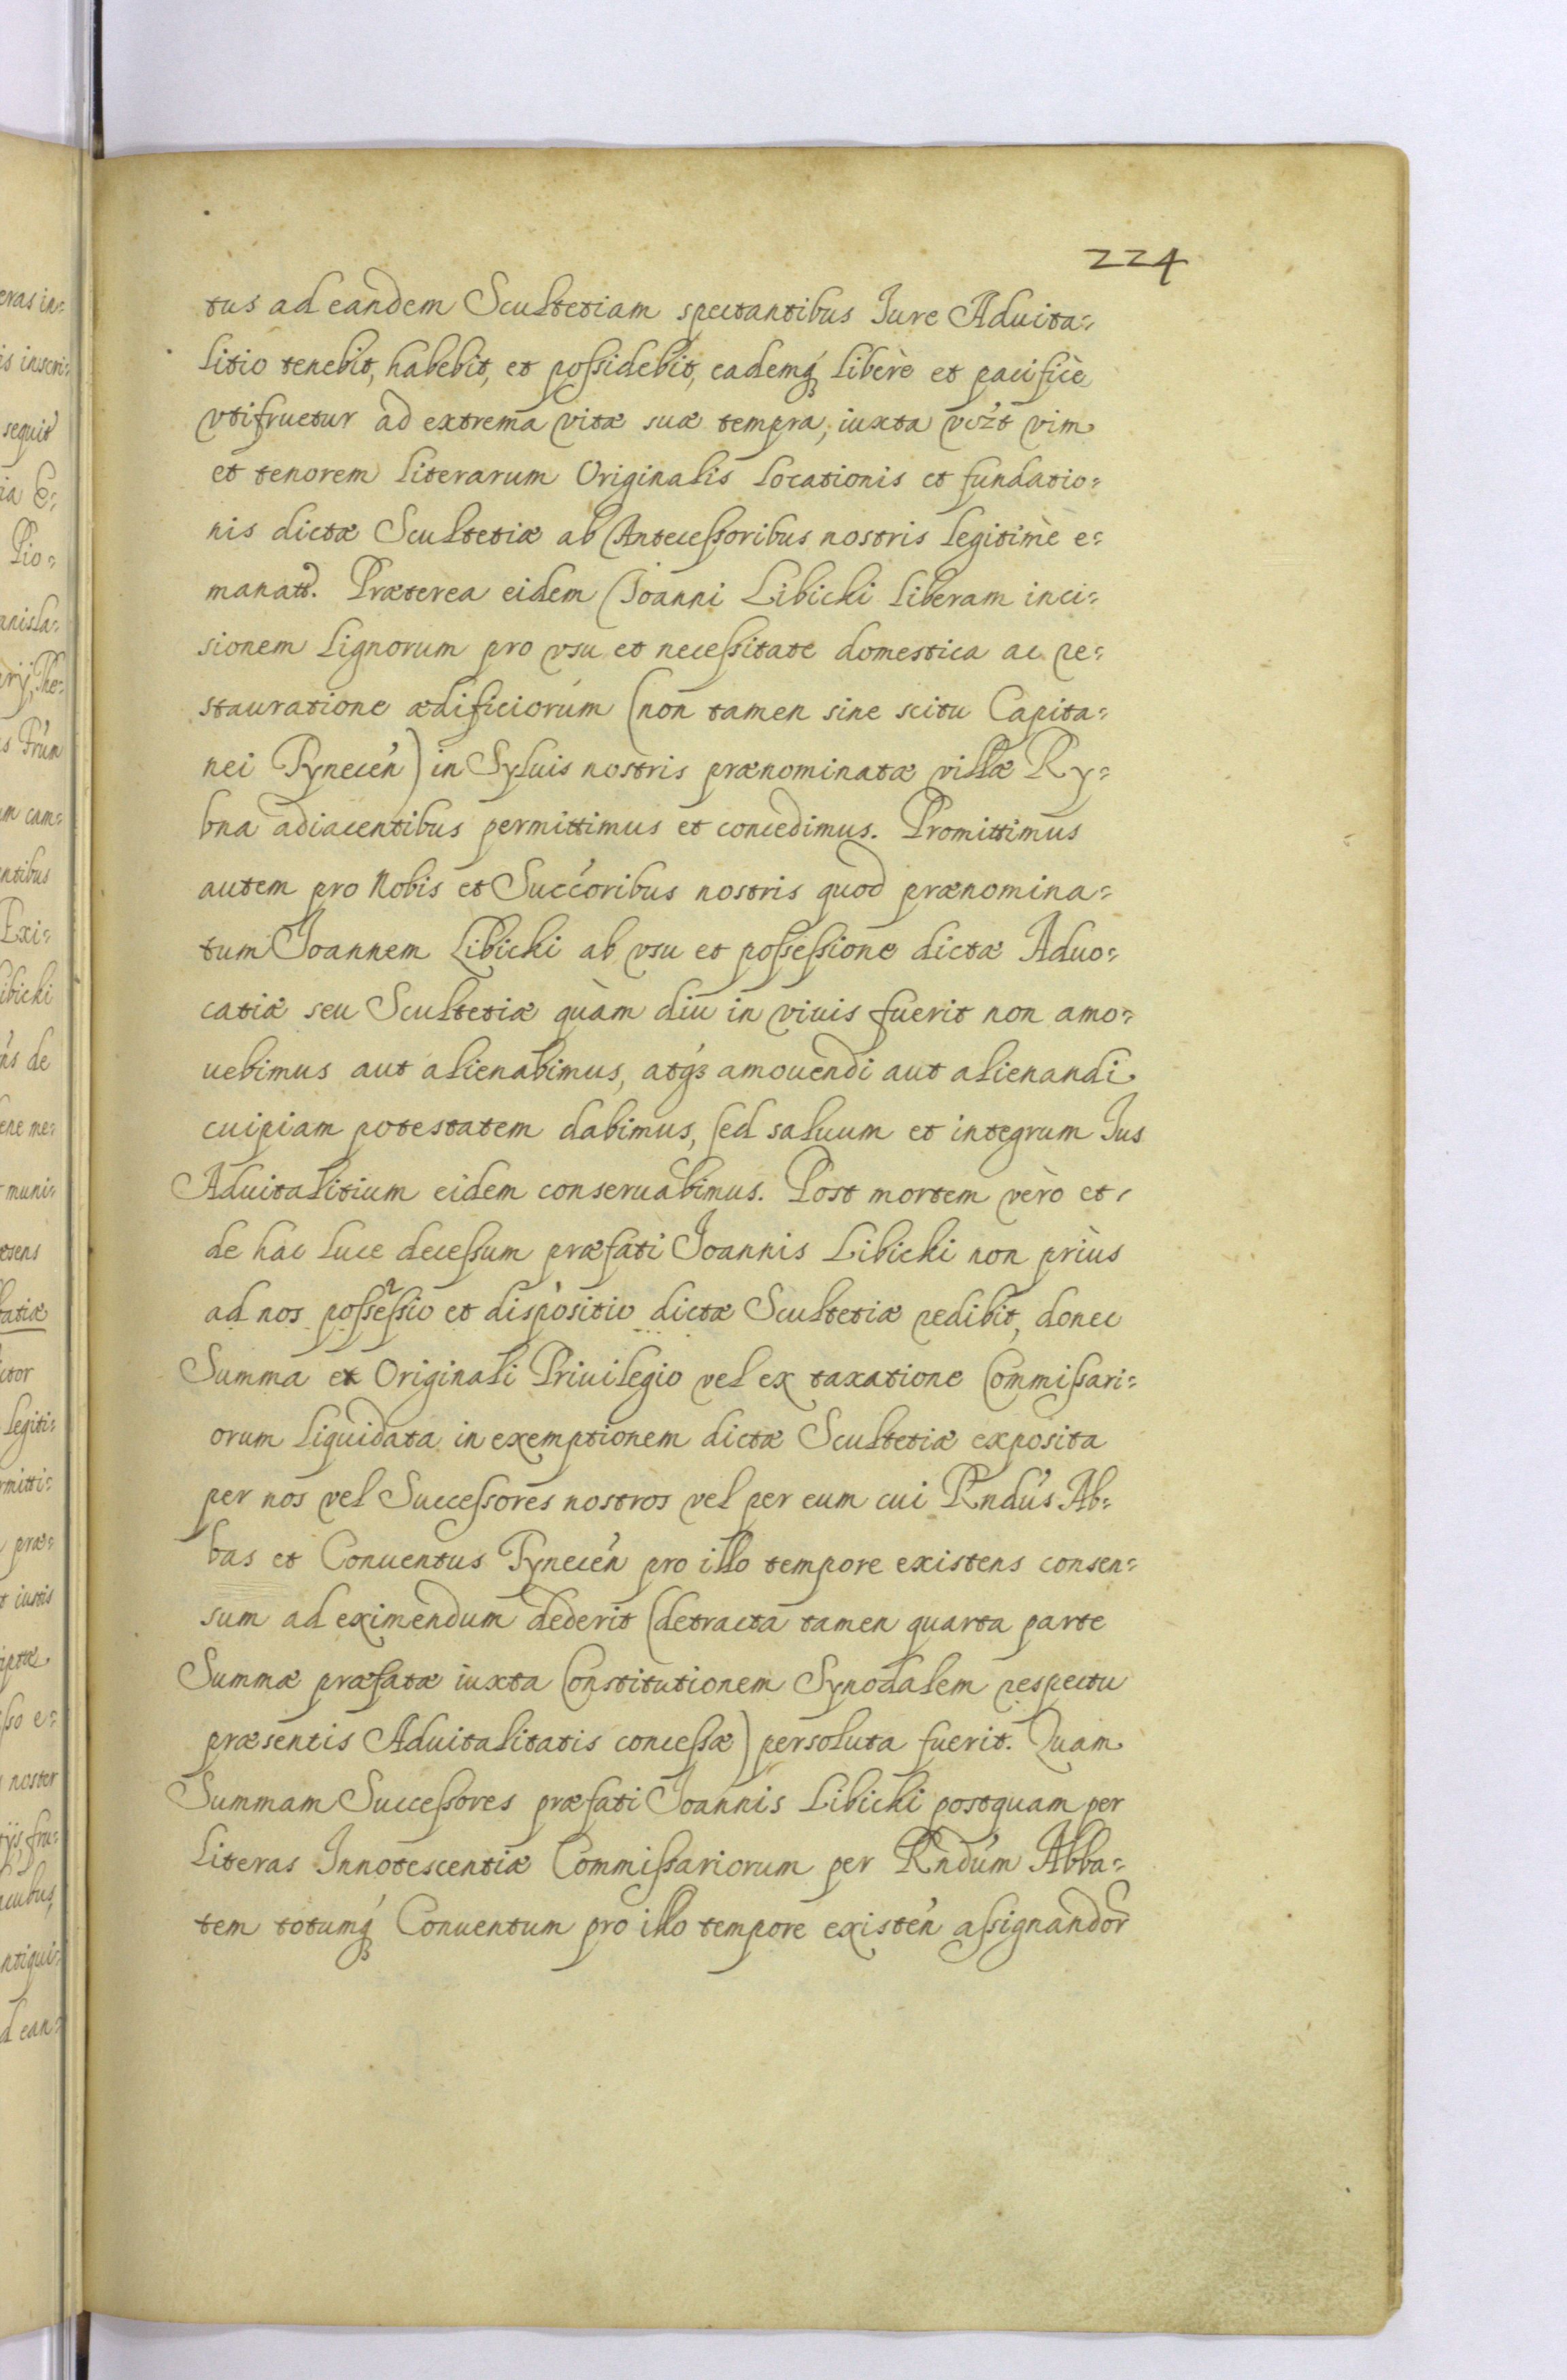 224
tus ad eandem Scultetiam spectantibus Iure Aduita=
litio tenebit, habebit, et possidebit, eademq́ʒ liberè et pacificè
vtifruetur ad extrema vitæ suæ tempra, iuxta vim
et tenorem literarum Originalis locationis et fundatio=
nis dictæ Scultetiæ ab Antecessoribus nostris legitimè e=
manatt. Præterea eidem Ioanni Libicki liberam inci=
sionem lignorum pro vsu et necessitate domestica ac re=
stauratione ædificiorúm (non tamen sine scitu Capita=
nei Tynecén) in Syluis nostris prænominatæ villæ Ry=
bna adiacentibus permittimus et concedimus. Promittimus
autem pro Nobis et Succóribus nostris quod prænomina=
tum Ioannem Libicki ab vsu et possessione dictæ Aduo=
catiæ seu Scultetiæ quàm diu in viuis fuerit non amo=
uebimus aut alienabimus, atq́ʒ amouendi aut alienandi
cuipiam potestatem dabimus, sed saluum et integrum Ius
Aduitalitium eidem conseruabimus. Post mortem vèro et
de hac luce decessum præfati Ioannis Libicki non priùs
ad nos possessio et dispositio dictæ Scultetiæ redibit, donec
Summa et Originali Priuilegio vel ex taxatione Commissari=
orum liquidata in exemptionem dictæ Scultetiæ exposita
per nos vel Successores nostros vel per eum cui Rndús Ab=
bas et Conuentus Tynecén pro illo tempore existens consen=
sum ad eximendum dederit (detracta tamen quarta parte
Summæ præfatæ iuxta Constitutionem Synodalem respectu
præsentis Aduitalitatis concessæ) persoluta fuerit. Quam
Summam Successores præfati Ioannis Libicki postquam per
literas Innotescentiæ Commissariorum per Rndúm Abba=
tem totumq́ʒ Conuentum pro illo tempore existén assignandor